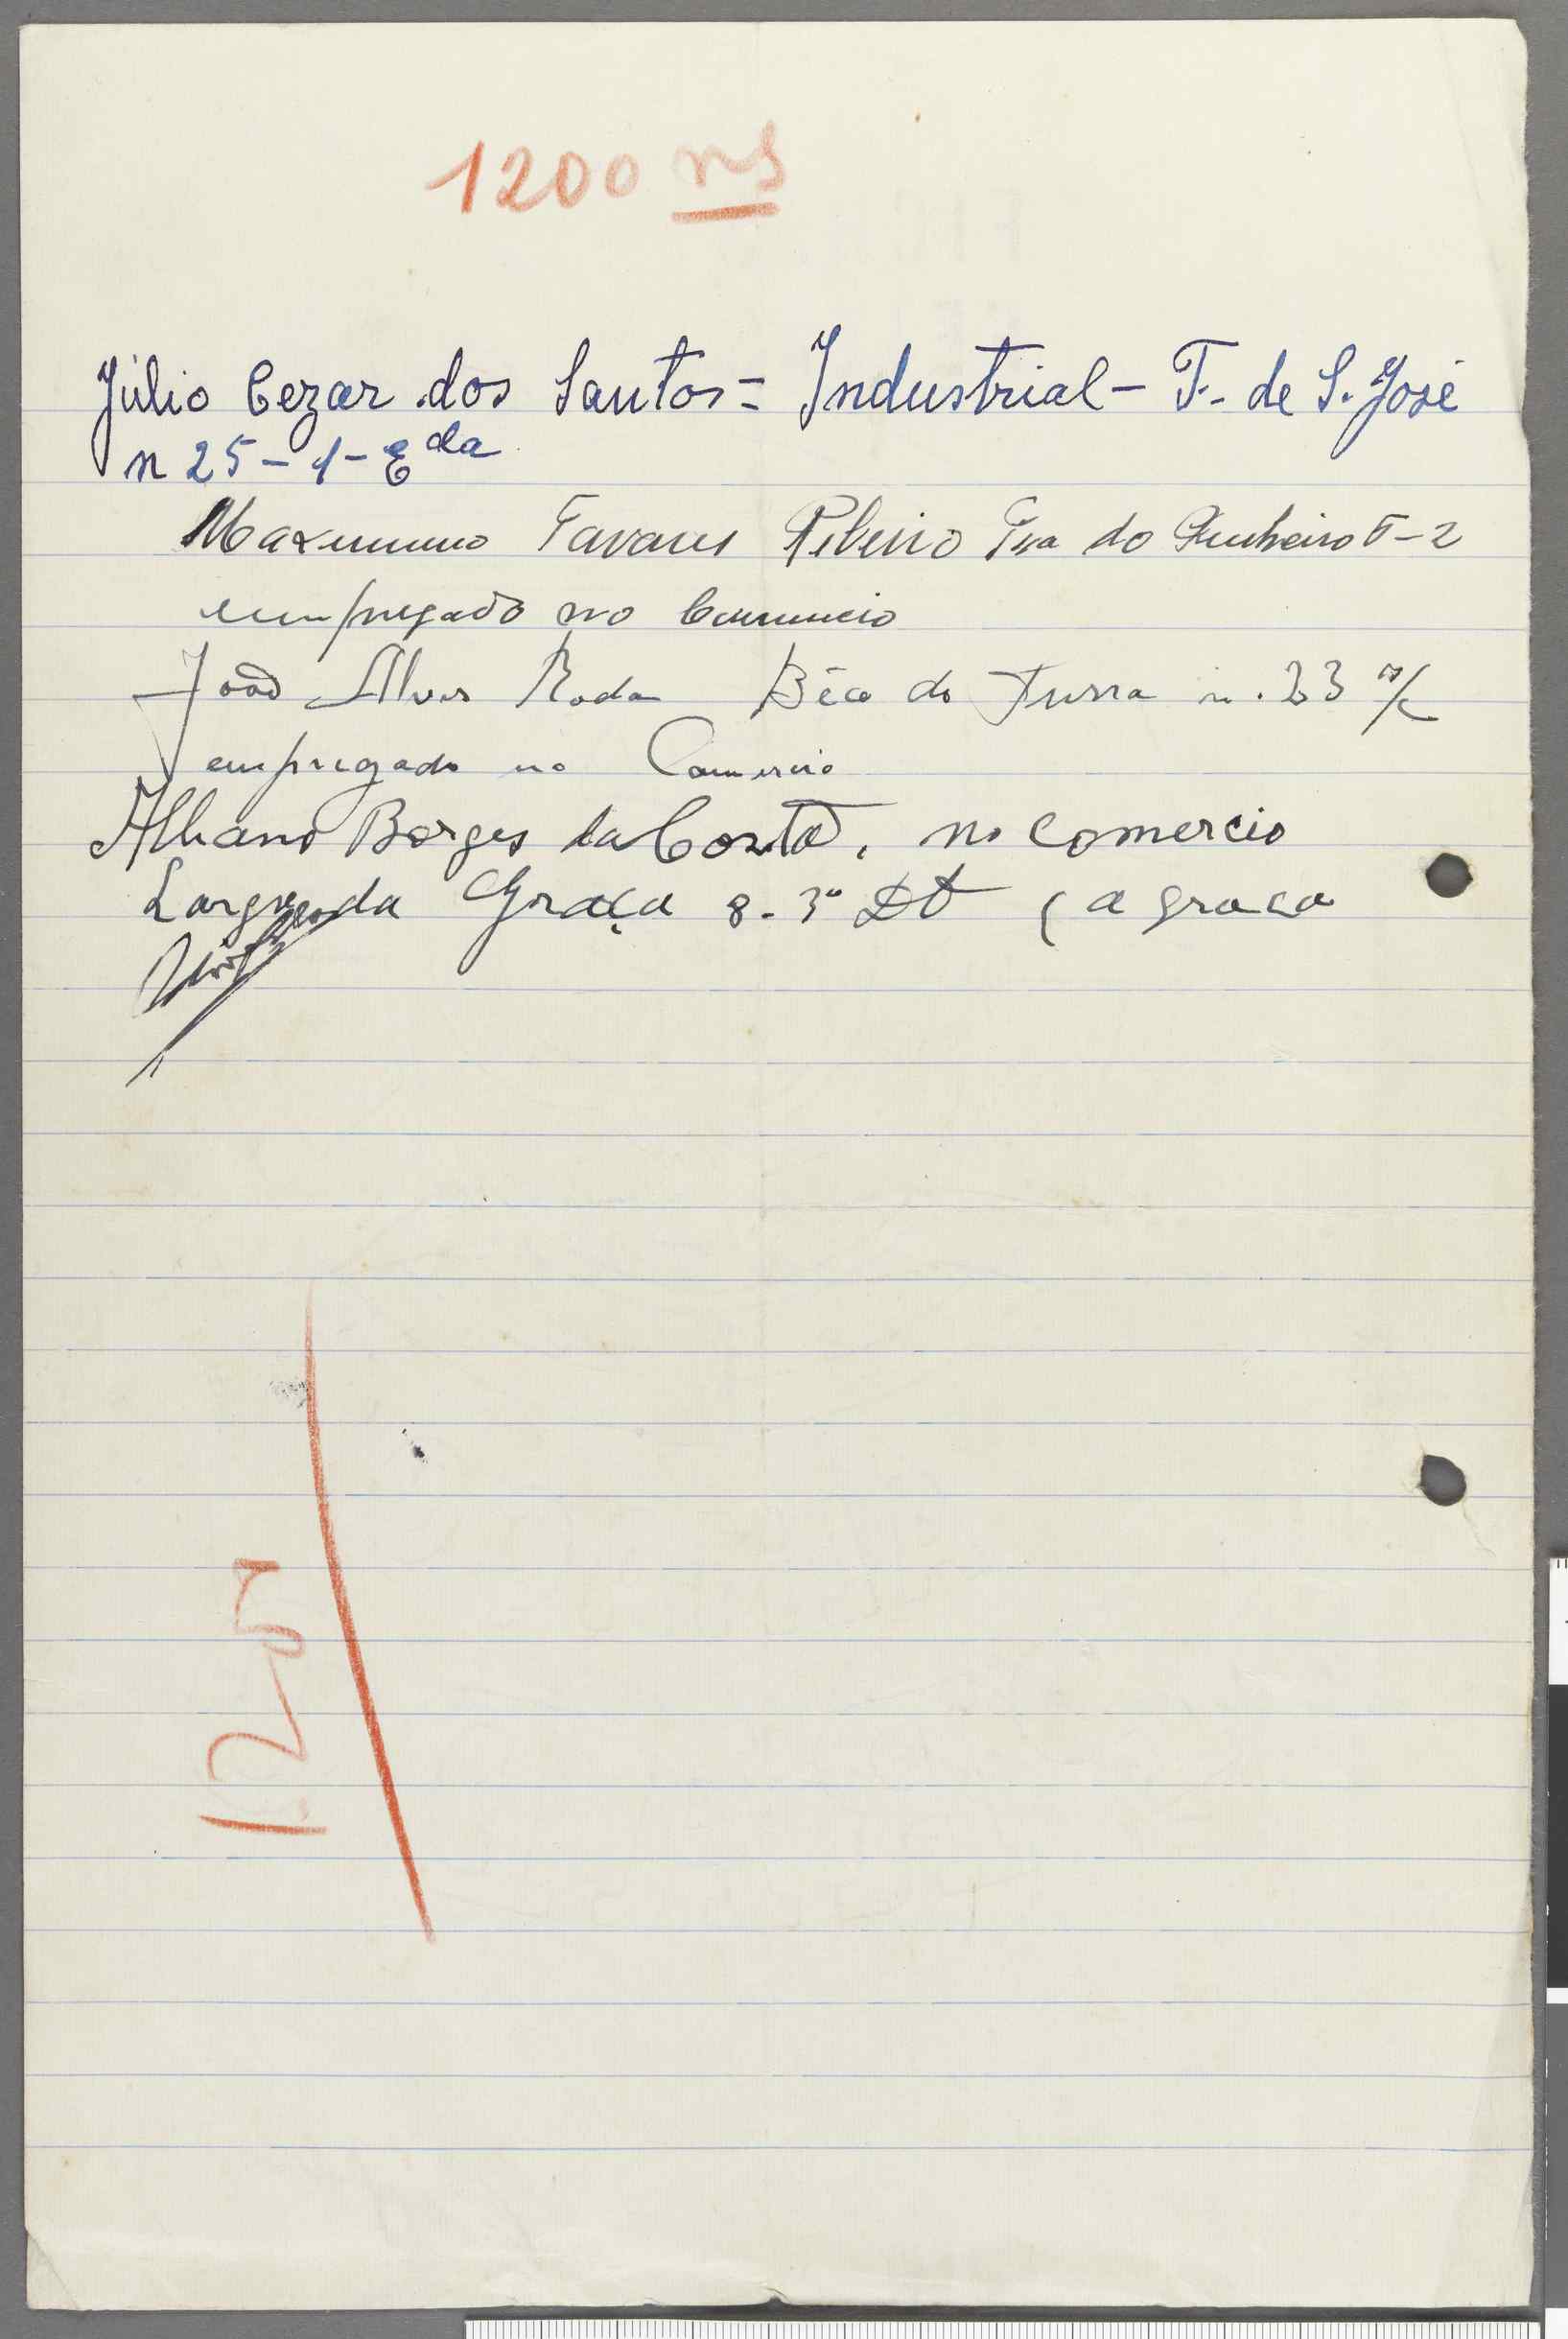 1200 rs
Júlio Cezar dos Santos = Industrial - T. de S. José
n 25 - 1 - Eda
Maximino Tavares Ribeiro Tssa do Pinheiro - 2
empregado no Comercio
João Alves Roda Bêco do n. 23 r/c
empregado no Comercio
Albano Borges da Costa, no comercio
Largo da Graça 8 - 3º Dt ( a graça